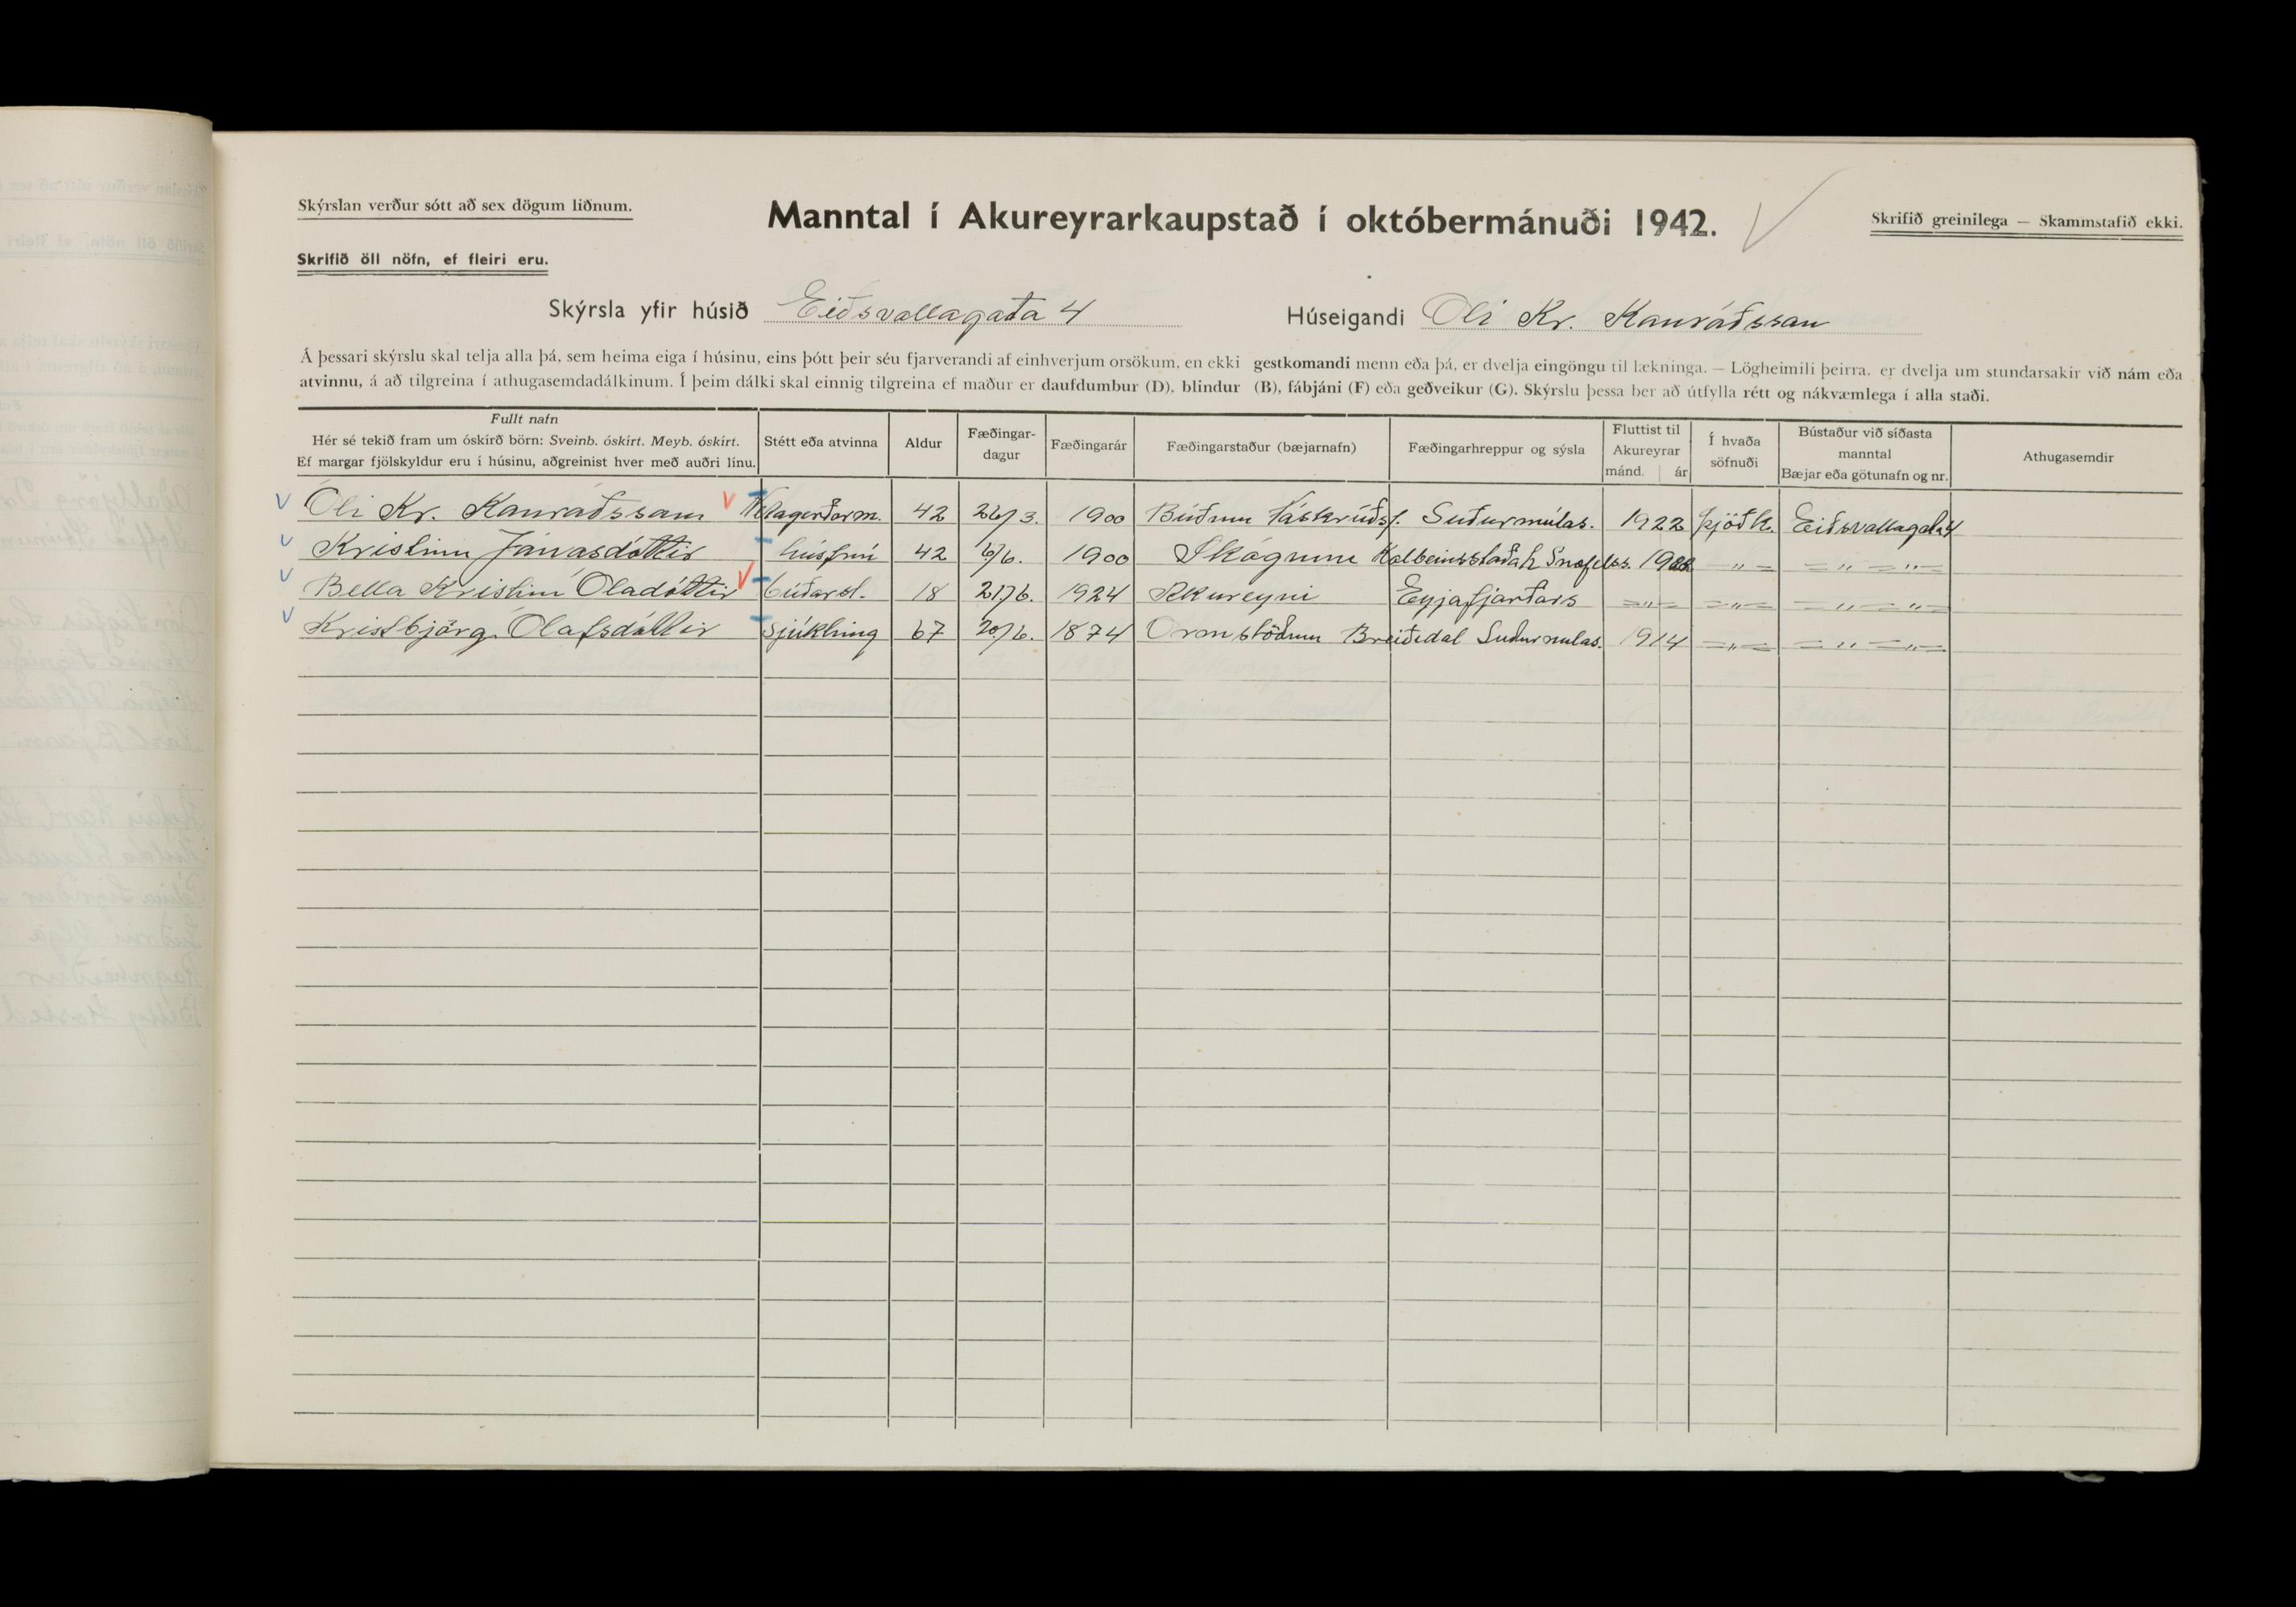 Skýrslan verður sótt að sex dögum liðnum.
Manntal í Akureyrarkaupstað í októbermánuði 1942.
Skrifið greinilega — Skammstafið ekki.
Skrifið öll nöfn, ef fleiri eru.
Skýrsla yfir húsið Eiðsvallagata 4 Húseigandi Óli Kr. Konráðsson
Á þessari skýrslu skal telja alla þá, sem heima eiga í húsinu, eins þótt þeir séu fjarverandi af einhverjum orsökum, en ekki gestkomandi menn eða þá, er dvelja eingöngu til lækninga. — Lögheimili þeirra, er dvelja um stundarsakir við nám eða
atvinnu, á að tilgreina í athugasemdadálkinum. Í þeim dálki skal einnig tilgreina ef maður er daufdumbur (D), blindur (B), fábjáni (F) eða geðveikur (G). Skýrslu þessa ber að útfylla rétt og nákvæmlega í alla staði.
Fullt nafn
Hér sé tekið fram um óskírð börn: Sveinb. óskírt. Meyb. óskírt.
Ef margar fjölskyldur eru í húsinu, aðgreinist hver með auðri línu.
Stétt eða atvinna
Aldur
Fæðingar-
dagur
Fæðingarár
Fæðingarstaður (bæjarnafn)
Fæðingarhreppur og sýsla
Fluttist til
Akureyrar
mánd. ár
Í hvaða
söfnuði
Bústaður við síðasta
manntal
Bæjar eða götunafn og nr.
Athugasemdir
Óli Kr. Konráðsson 42 26/3. 1900 Búðum Fáskrúðsf. Suðurmúlas. 1922 Þjóðk. Eiðsvallagata 4
Kristín Jónasdóttir húsfrú 42 6/6. 1900 Skógum Kolbeinsstaðah Snæfellss. -"- -"- -"-
Bella Kristín Óladóttir búðarst. 18 21/6. 1924 Akureyri Eyjafjarðars -"- -"- -"- -"-
Kristbjörg Ólafsdóttir Sjúkling 67 20/6. 1874 Ormstöðum Breiðdal Suðurmúlas. 1914 -"- -"- -"-